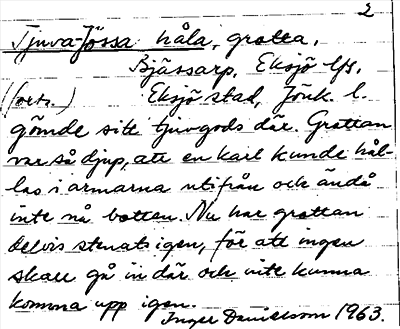 2
Tjuva-Jössa håla, grotta.
Bjässarp, Eksjö lfs,
(forts.) Eksjö stad, Jönk. l.
gömde sitt tjuvgods där. Grottan
var så djup, att en karl kunde hål-
las i armarna utifrån och ändå
inte nå botten. Nu har grottan
delvis stenats igen, för att ingen
skall gå in där och inte kunna
komma upp igen.
Inger Danielsson 1963.